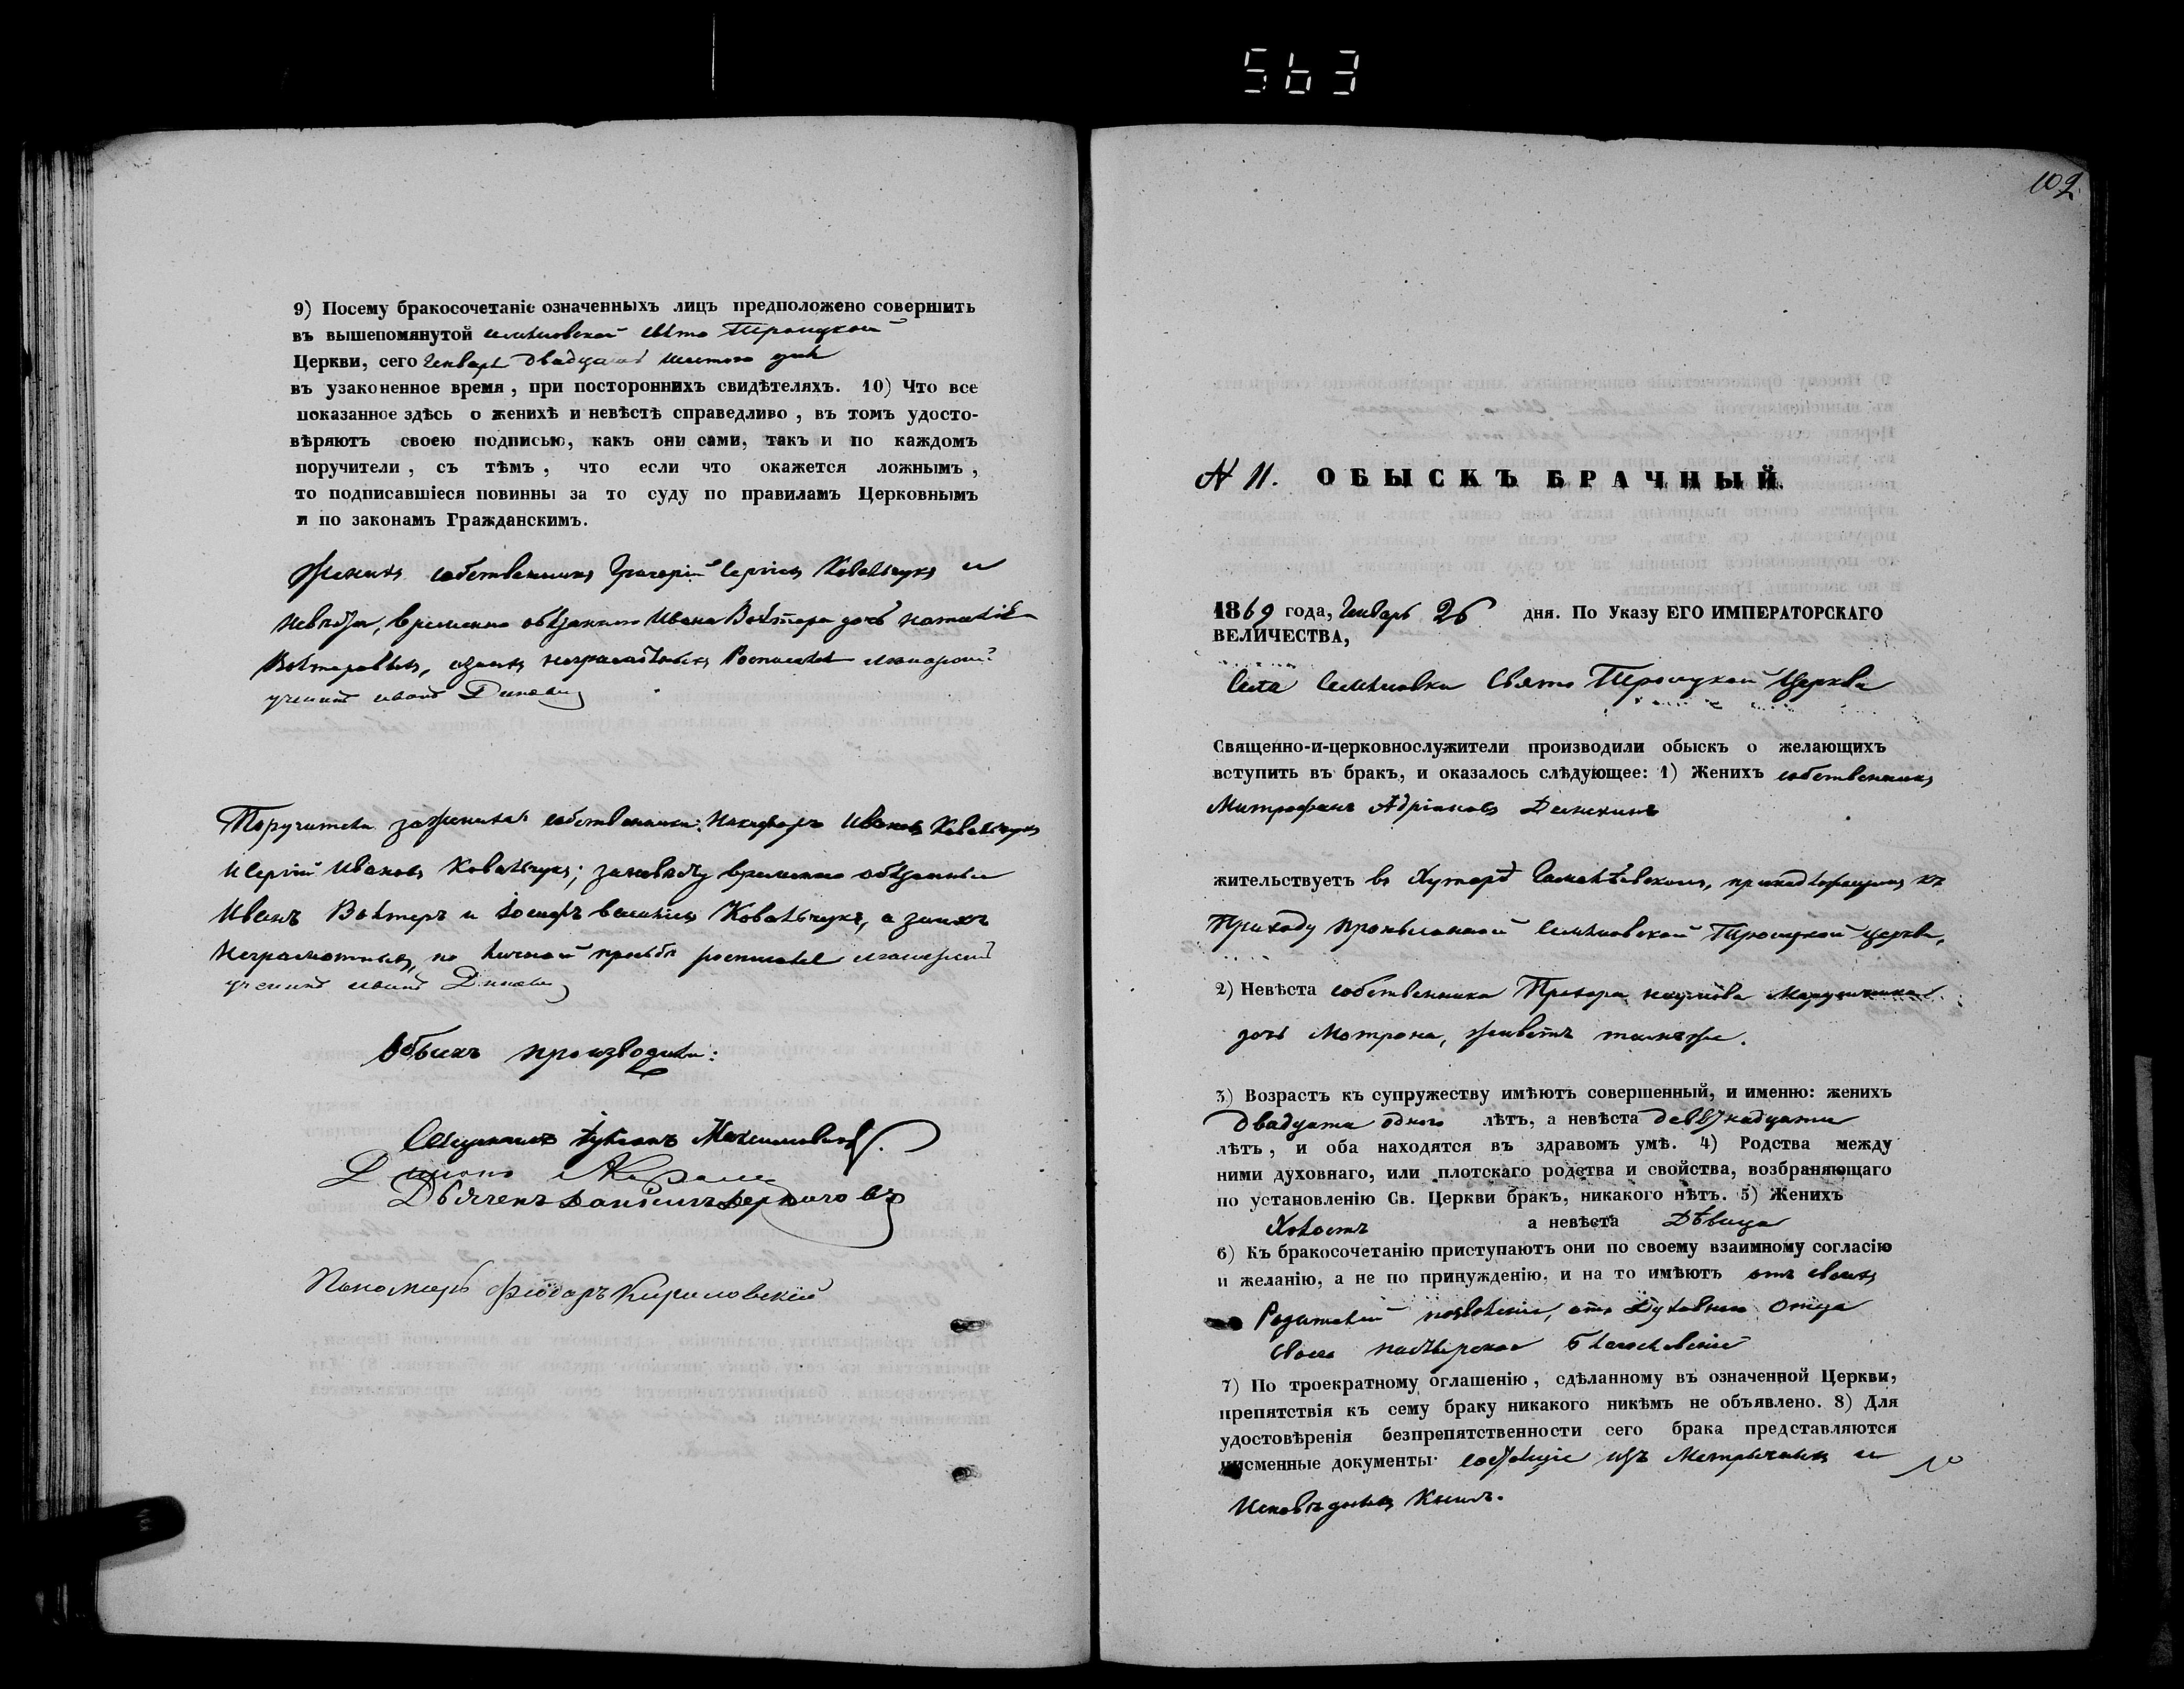 563
9) Посему бракосочетаніе означенныхъ лицъ предположено совершить
въ вышепомянутой Свято Троицкой
Церкви, сего Генваря Двадцать шестого дня
въ узаконенное время, при постороннихъ свидѣтеляхъ. 10) Что все
показанное здѣсь о женихѣ и невѣстѣ справедливо, въ томъ удосто-
вѣряютъ своею подписью, какъ они сами, такъ и по каждомъ
поручители, съ тѣмъ, что если что окажется ложнымъ,
то подписавшіеся повинны за то суду по правиламъ Церковнымъ
и по законамъ Гражданскимъ.
Женихъ собственникъ Григорій Сергіевъ Ковальчукъ и
невѣста, временно обязанного Ивана дочь
неграмотныхъ Росписался
Поручители за женихѣ собственники: Никифоръ Ивановъ Ковальчукъ
и Сергій Ивановъ Ковальчукъ; за невѣсту временно обязанные
Иванъ и Іосифъ Ковальчукъ, а за нихъ
неграмотныхъ, по личной прозьбѣ росписался
Обыскъ производили:
Священникъ
Пономарь Фіодоръ Кириловскій
102
N 11. ОБЫСКЪ БРАЧНЫЙ.
1869 года, Генваря 26 дня. По Указу ЕГО ИМПЕРАТОРСКАГО
ВЕЛИЧЕСТВА,
Села Свято Троицкой Церкви
Священно-и-церковнослужители производили обыскъ о желающихъ
вступить въ бракъ, и оказалось слѣдующее: 1) Женихъ собственникъ
Митрофанъ Адріановъ
жительствуетъ въ Хуторѣ принадлежащемъ къ
Приходу Троицкой церкви,
2) Невѣста собственника
дочь Мотрона, живетъ тамъ же.
3) Возрастъ къ супружеству имѣютъ совершенный, и именно: женихъ
Двадцати одного лѣтъ, а невѣста девятнадцати
лѣтъ, и оба находятся въ здравомъ умѣ. 4) Родства между
ними духовнаго, или плотскаго родства и свойства, возбраняющаго
по установленію Св. Церкви бракъ, никакого нѣтъ. 5) Женихъ
Холостъ а невѣста Дѣвица
6) Къ бракосочетанію приступаютъ они по своему взаимному согласію
и желанію, а не по принужденію, и на то имѣютъ отъ своихъ
Родителей позволеніе, отъ Духовного Отца
своего пастырское благословеніе
7) По троекратному оглашенію, сдѣланному въ означенной Церкви,
препятствія къ сему браку никакого никѣмъ не объявлено. 8) Для
удостовѣренія безпрепятственности сего брака представляются
писменные документы: изъ Метрычныхъ и
Исповѣдныхъ Книгъ.